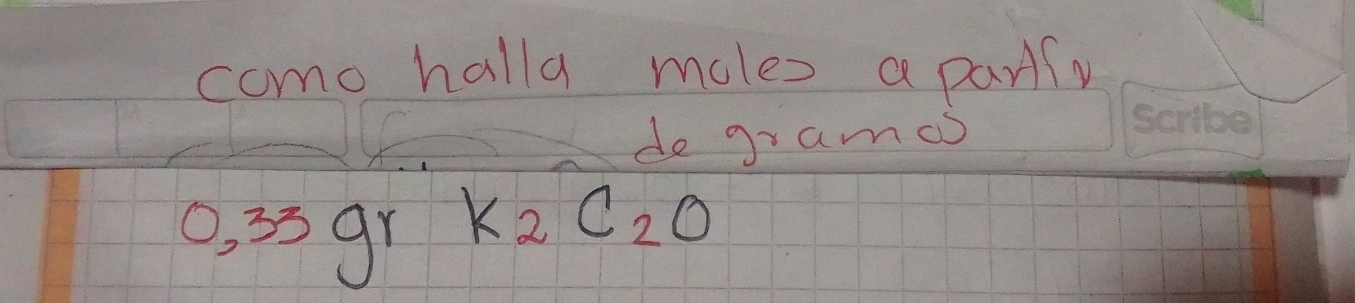 como halla moles a partir
de gramos
Scribe
0,33 gr K2 C2O